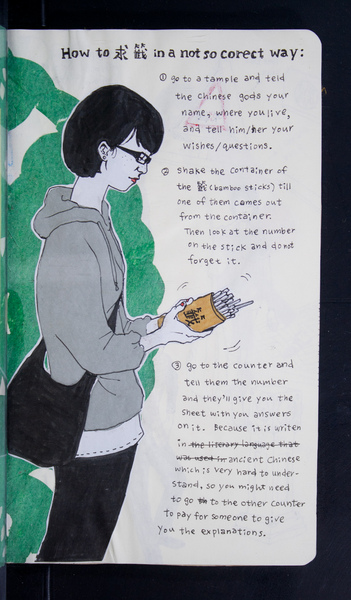 How to 求籤 in a not so corect way:
① go to a tample and teld
the chinese gods your
name, where you live,
and tell him/her your
wishes/questions.
② shake the container of
the 籤 (bamboo sticks) till
one of them comes out
from the container.
Then look at the number
on the stick and do not
forget it.
③ go to the counter and
tell them the number
and they'll give you the
sheet with you answers
on it. Because it is writen
in the literary language that
was used in ancient Chinese
which is very hard to under-
stand, so you might need
to go to the other counter
to pay for someone to give
you the explanations.